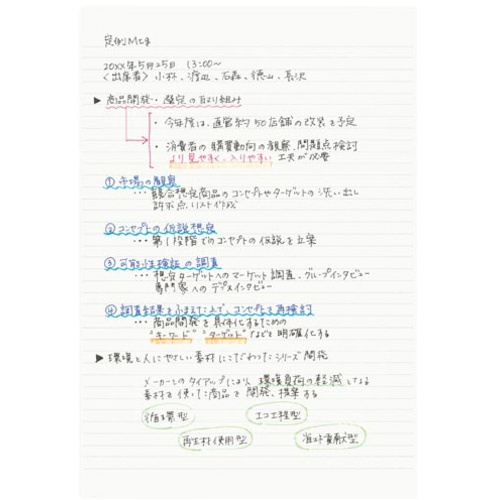 定例Mtg
20XX年5月25日 13:00〜
<出席者> 小林、渡辺、石森、徳山、長沢
▶ 商品開発・選定の取り組み
・今年度は、直営約50店舗の改装を予定
・消費者の購買動向の観察、問題点検討
より見やすく、入りやすい工夫が必要
① 市場の観察
・・・競合想定商品のコンセプトやターゲットの洗い出し
訴求点リスト作成
② コンセプトの仮説想定
・・・第1段階でのコンセプトの仮説を立案
③ 可能性検証の調査
・・・想定ターゲットへのマーケット調査、グループインタビュー
専門家へのデプスインタビュー
④ 調査結果をふまえた上で、コンセプトを再検討
・・・商品開発を具体化するための
"キーワード" "ターゲット"などを明確化する
▶ 環境と人にやさしい素材にこだわったシリーズ開発
メーカーとのタイアップにより 環境負荷の軽減となる
素材を使いた商品を開発、提案する
循環型 エコ工程型
再生材使用型 省エネ貢献型